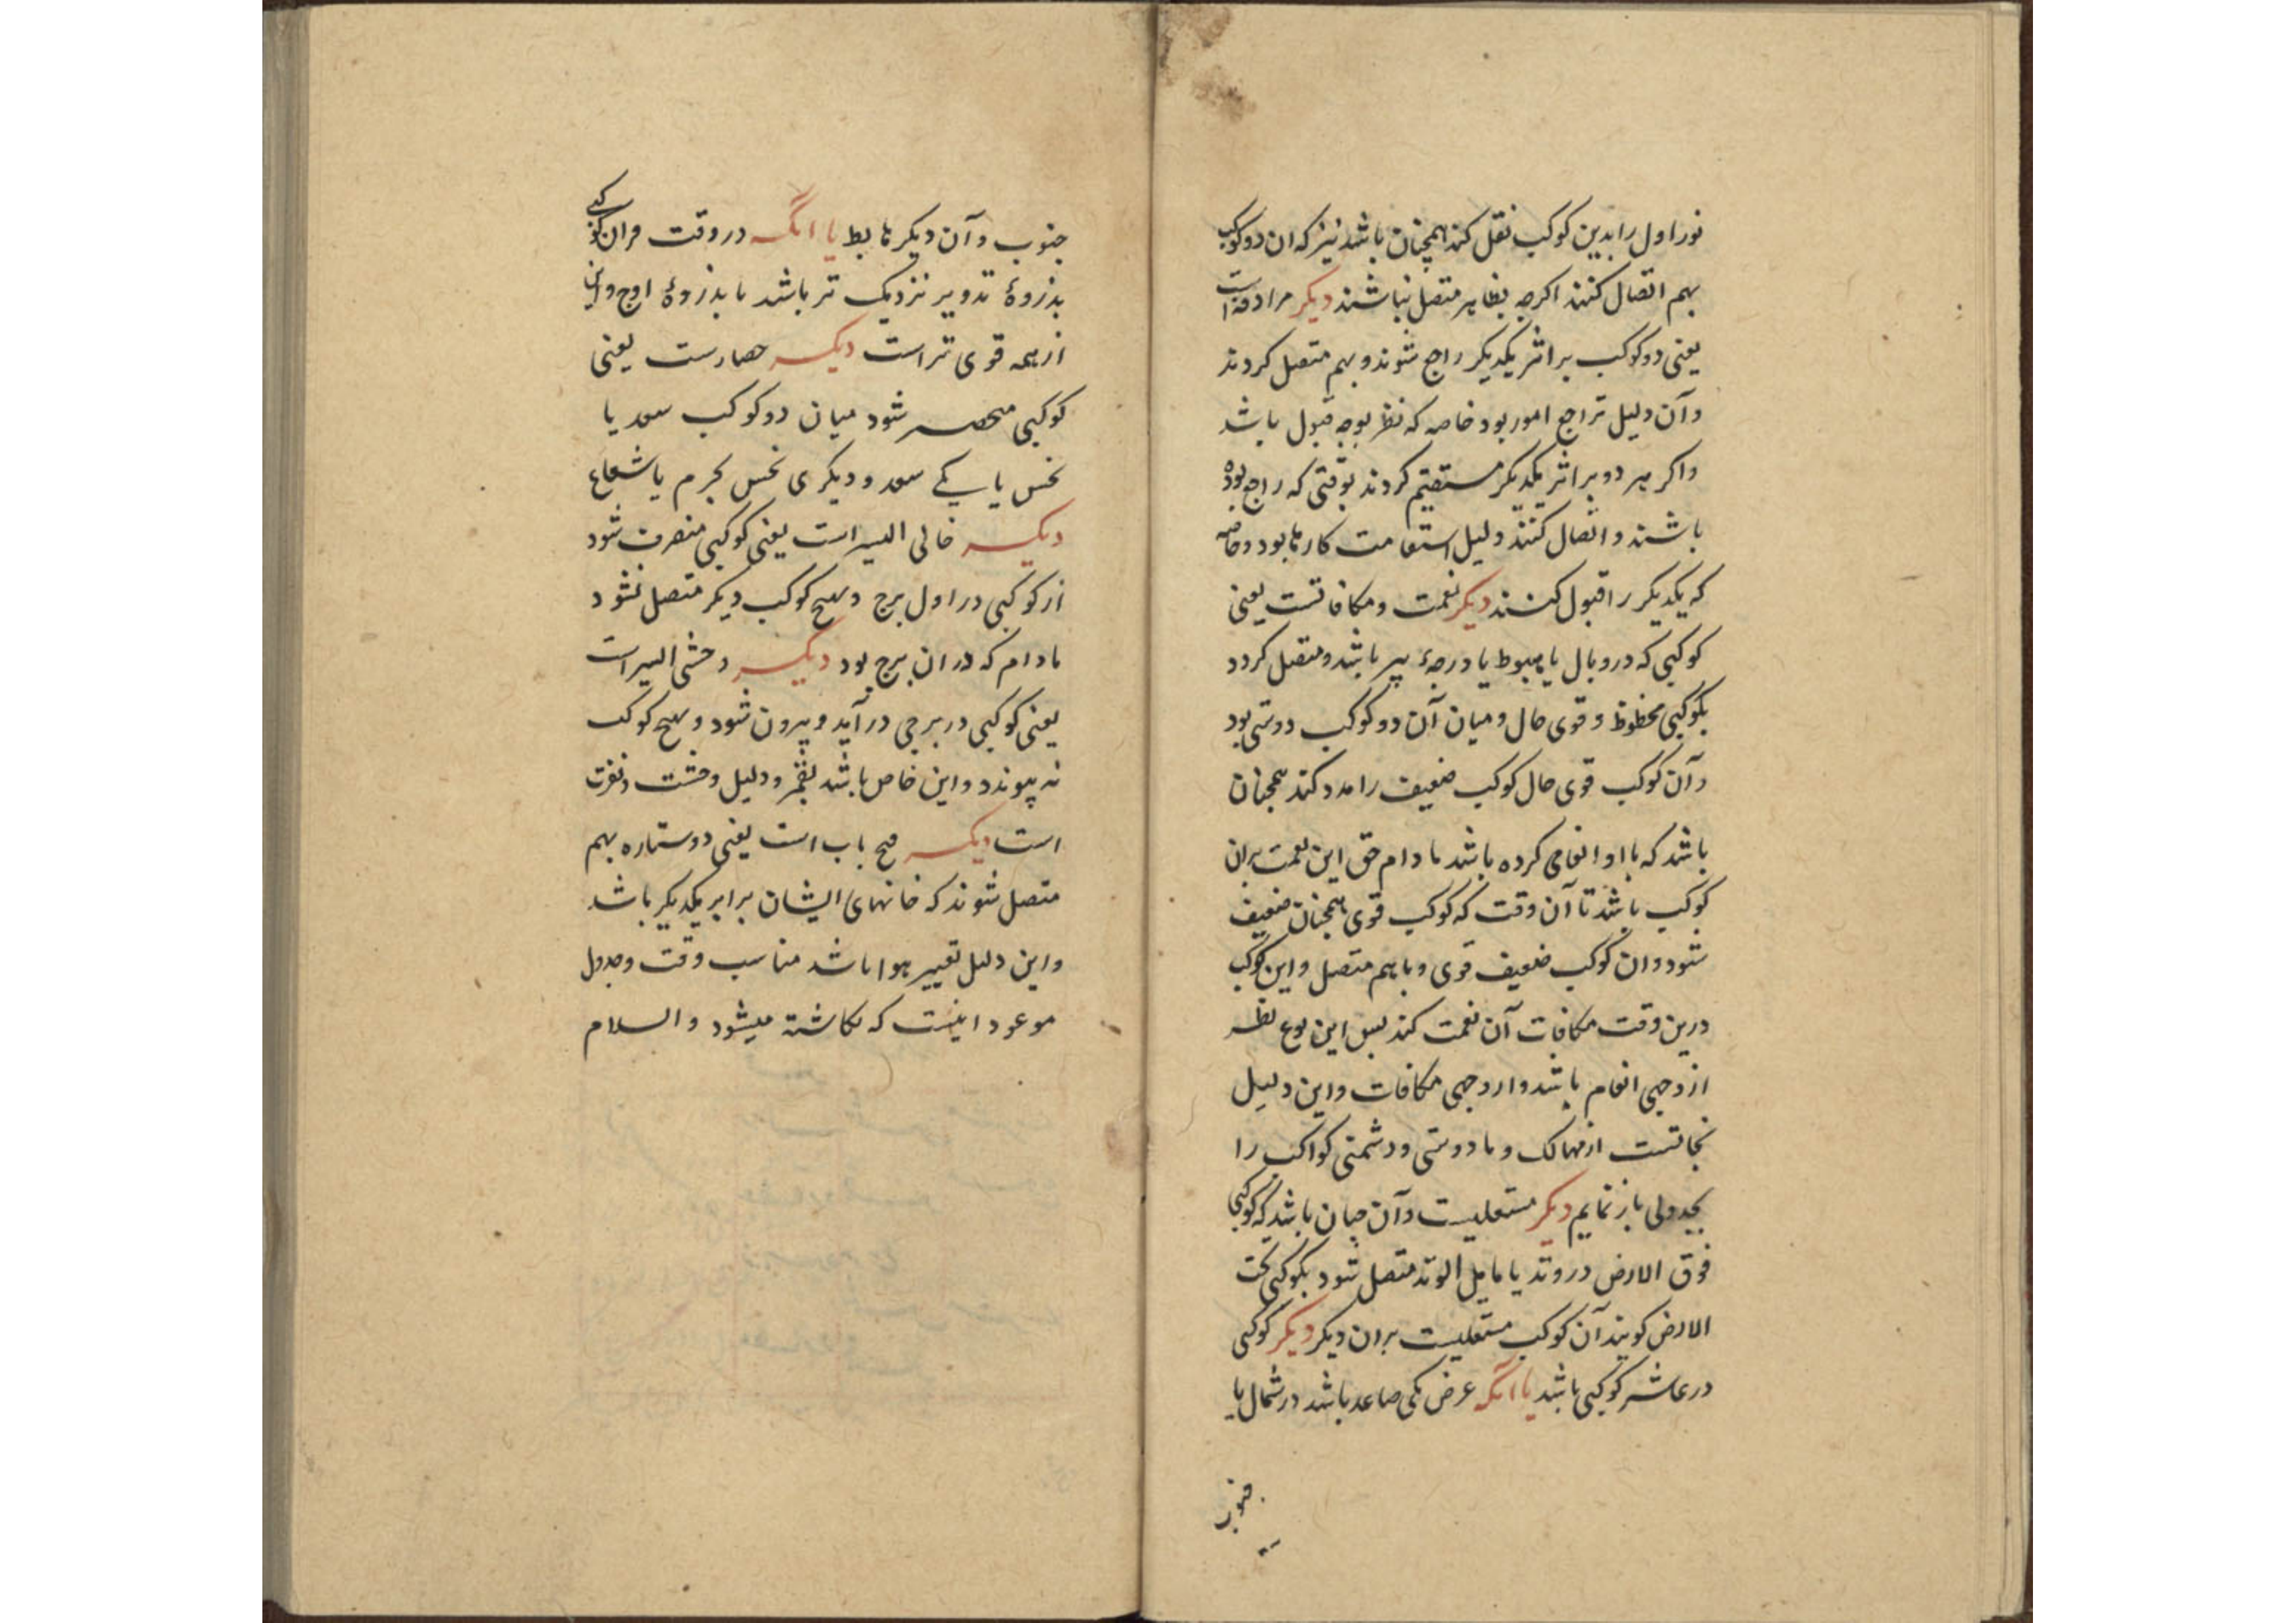 نور اول را بدین کوکب نقل کند همچنان باشد نیز که ان دو کوکب
بهم اتصال کنند اکرچه بظاهر متصل نباشند دیکر مرادفه است
یعنی دو کوکب بر اثر یکدیکر راجع شوند و بهم متصل کردند
و آن دلیل تراجع امور بود خاصه که نظر بوجه قبول باشد
و اکر هر دو بر اثر یکدیکر مستقیم کردند بوقتی که راجع بوده
باشند و اتصال کنند دلیل استقامت کارها بود و خاصه
که یکدیکر را قبول کنند دیکر نعمت و مکافاتست یعنی
کوکبی که در وبال یا هبوط یا درجهٔ بیر باشد و متصل کردد
بکوکبی محظوظ و قوی حال و میان آن دو کوکب دوستی بود
و آن کوکب قوی حال کوکب ضعیف را مدد کند همچنان
باشد که با او انعامی کرده باشد مادام حق این نعمت بران
کوکب باشد تا آن وقت که کوکب قوی همچنان ضعیف
شود و ان کوکب ضعیف قوی و باهم متصل و این کوکب
درین وقت مکافات آن نعمت کند بس این نوع نظر
از وجهی انعام باشد و از وجهی مکافات و این دلیل
نجاتست از مهالک و ما دوستی و دشمنی کواکب را
بجدولی باز نمایم دیکر مستعلیست و آن چنان باشد که کوکبی
فوق الارض در وتد یا مایل الوتد متصل شود بکوکبی تحت
الارض کویند آن کوکب مستعلیست بران دیکر دیکر کوکبی
در عاشر کوکبی باشد یا آنکه عرض یکی صاعد باشد در شمال یا
جنوب
جنوب و آن دیکر هابط یا انکه در وقت قران کوکبی
بذروهٔ تدویر نزدیک تر باشد یا بذروهٔ اوج و این
از همه قوی تر است دیکر حصارست یعنی
کوکبی منحصر شود میان دو کوکب سعد یا
نحس یا یکی سعد و دیکری نحس بجرم یا شعاع
دیکر خالی السیر است یعنی کوکبی منصرف شود
از کوکبی در اول برج و هیچ کوکب دیکر متصل نشود
مادام که در ان برج بود دیکر وحشی السیر است
یعنی کوکبی در برجی در آید و بیرون شود و هیچ کوکب
نه پیوندد و این خاص باشد بقمر و دلیل وحشت و نفرت
است دیکر فتح باب است یعنی دو ستاره بهم
متصل شوند که خانهای ایشان برابر یکدیکر باشد
و این دلیل تغییر هوا باشد مناسب وقت و جدول
موعود اینست که نکاشته میشود والسلام